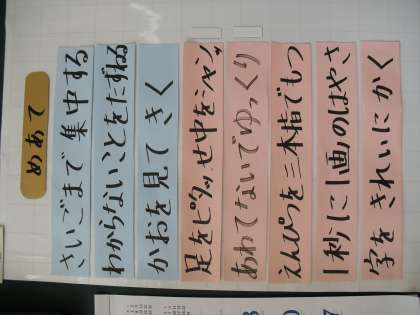 めあて
さいごまで 集中する
わからないことをたずねる
かおを見て きく
足をピタッ せ中をシャンッ
あわてないで ゆっくり
えんぴつを三本指でもつ
1秒に1画のはやさ
字を きれいに かく